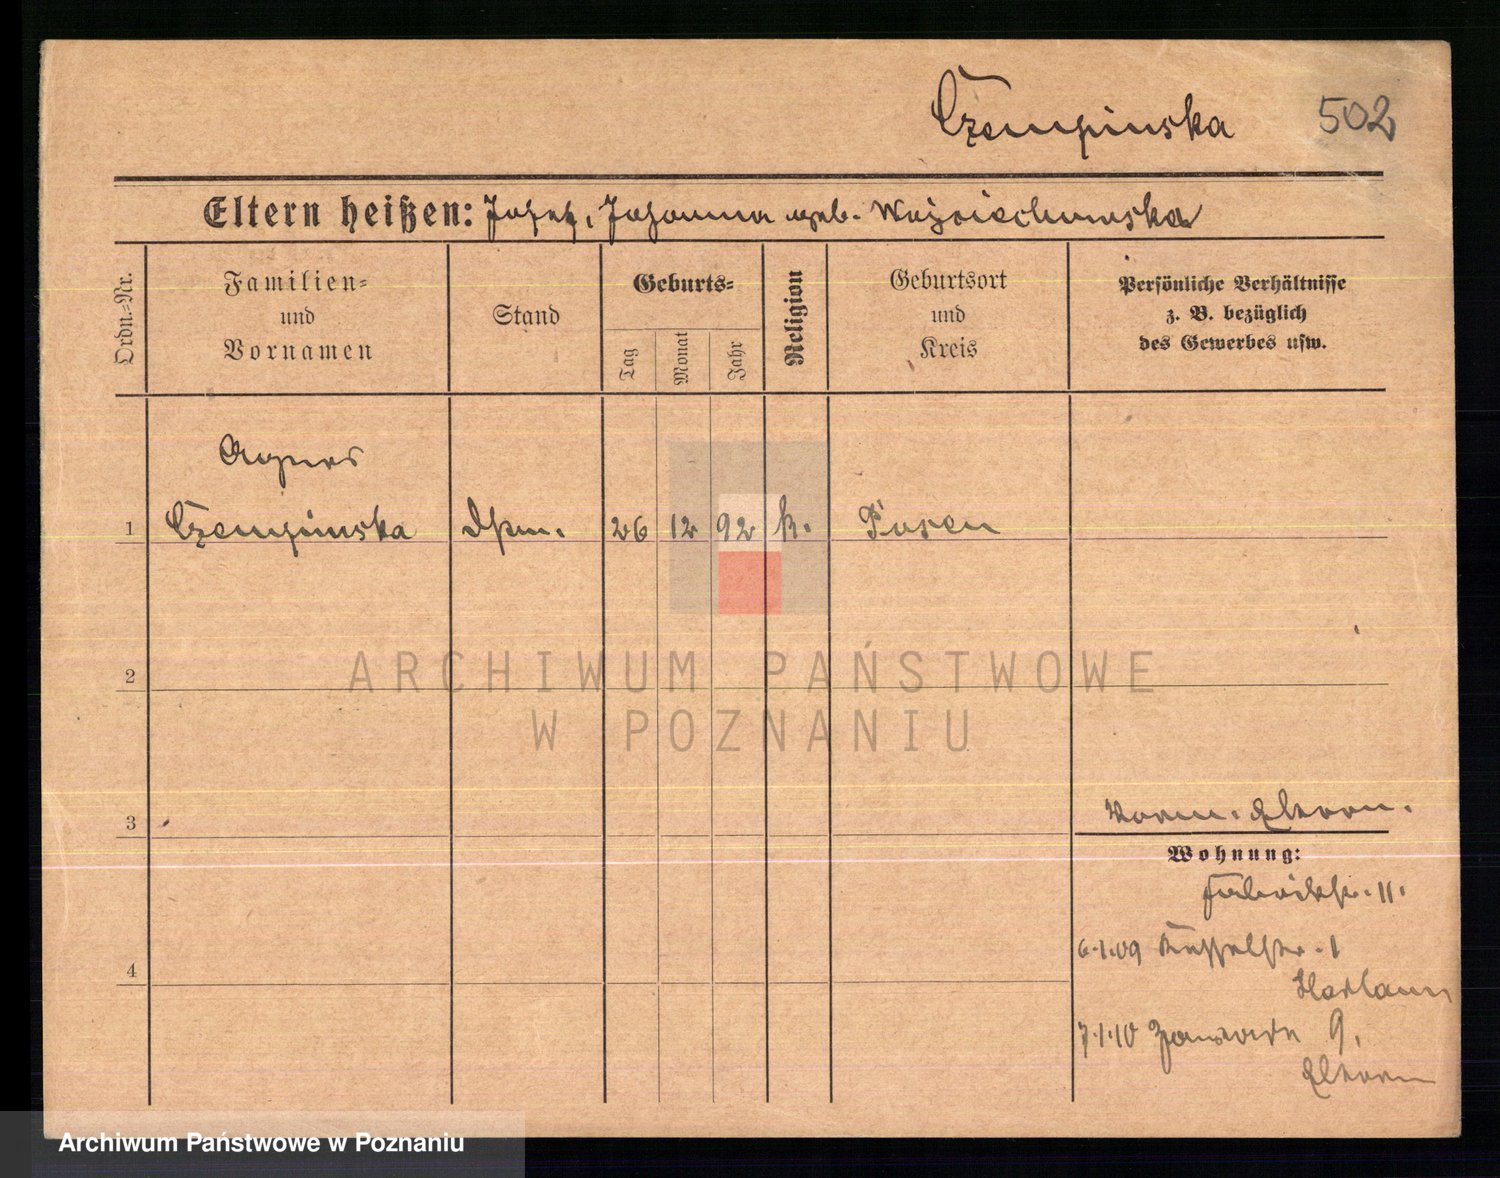 Czempinska 502
Eltern heißen: Josef, Johanna geb. Wojciechowska
Ordn.-Nr.
Familien-
und
Vornamen
Stand
Geburts-
Tag
Monat
Jahr
Religion
Geburtsort
und
Kreis
Persönliche Verhältnisse
z. B. bezüglich
des Gewerbes usw.
Agnes
1 Czempinska 26 12 92 k. Posen
2
3
4
Eltern.
Wohnung:
Fabrikstr. 11.
6.1.09 1
7.1.10 9.
Eltern
ARCHIWUM PAŃSTWOWE
W POZNANIU
Archiwum Państwowe w Poznaniu